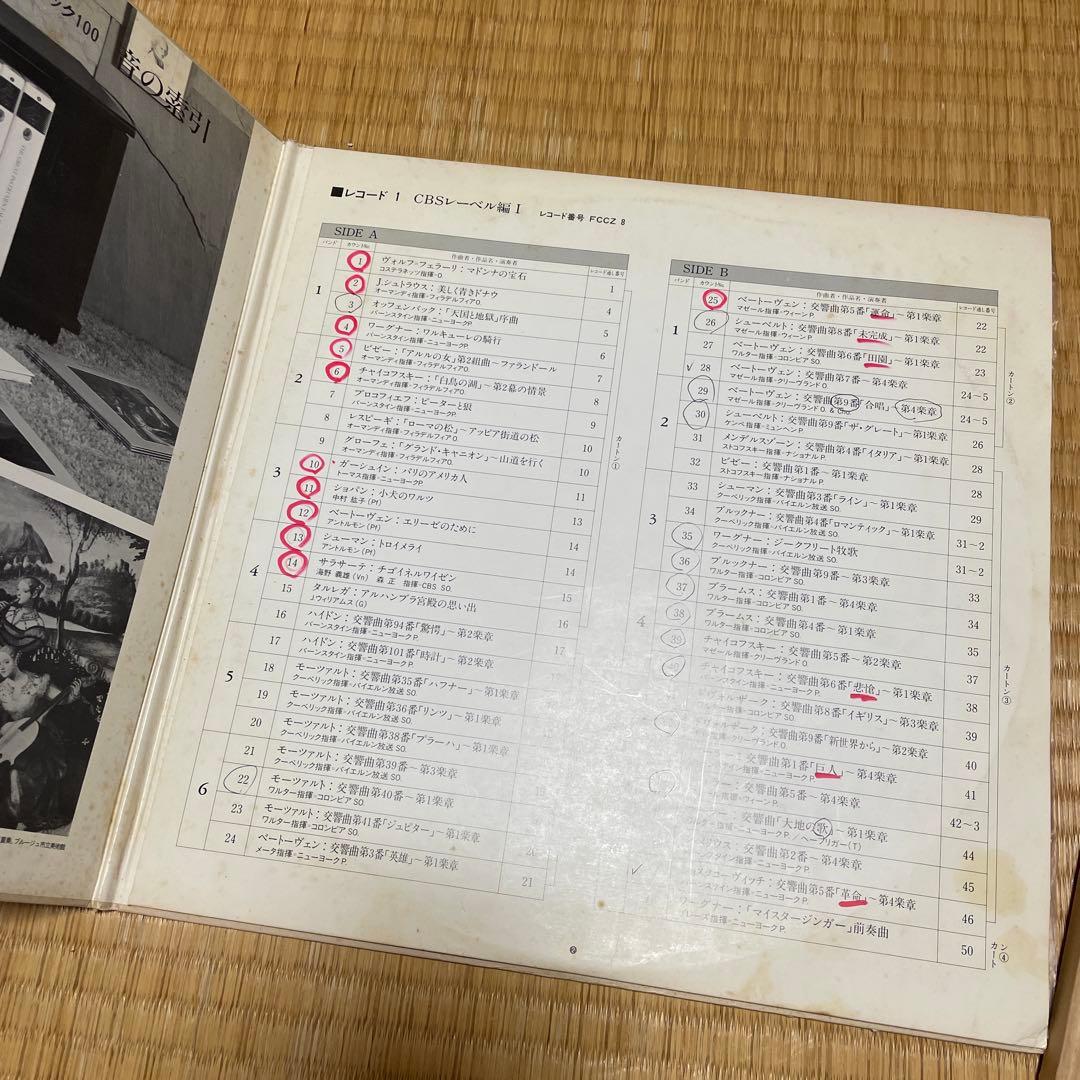 ック100
音の索引
■レコード 1 CBSレーベル編 I レコード番号 FCCZ 8
SIDE A
バンド カウントNo. 作曲者・作品名・演奏者 レコード通し番号
1
1 ヴォルフ=フェラーリ：マドンナの宝石 1
コステラネッツ指揮・O.
2 J.シュトラウス：美しく青きドナウ 4
オーマンディ指揮・フィラデルフィアO.
3 オッフェンバック：「天国と地獄」序曲 5
バーンスタイン指揮・ニューヨークP.
4 ワーグナー：ワルキューレの騎行 6
5 ビゼー：「アルルの女」第2組曲〜ファランドール 7
オーマンディ指揮・フィラデルフィアO.
2
6 チャイコフスキー：「白鳥の湖」〜第2幕の情景 8
オーマンディ指揮・フィラデルフィアO.
7 プロコフィエフ：ピーターと狼 8
バーンスタイン指揮・ニューヨークP.
8 レスピーギ：「ローマの松」〜アッピア街道の松 9
オーマンディ指揮・フィラデルフィアO.
9 グローフェ：「グランド・キャニオン」〜山道を行く 10
オーマンディ指揮・フィラデルフィアO.
3
10 ガーシュイン：パリのアメリカ人 10
トーマス指揮・ニューヨークP.
11 ショパン：小犬のワルツ 11
中村 紘子(Pf)
12 ベートーヴェン：エリーゼのために 13
アントルモン(Pf)
13 シューマン：トロイメライ 14
アントルモン(Pf)
4
14 サラサーテ：チゴイネルワイゼン 14
海野 義雄(Vn) 森 正 指揮・CBS SO.
15 タルレガ：アルハンブラ宮殿の思い出 15
J.ウィリアムス(G)
16 ハイドン：交響曲第94番「驚愕」〜第2楽章 16
バーンスタイン指揮・ニューヨークP.
17 ハイドン：交響曲第101番「時計」〜第2楽章 17
バーンスタイン指揮・ニューヨークP.
5
18 モーツァルト：交響曲第35番「ハフナー」〜第1楽章
クーベリック指揮・バイエルン放送 SO.
19 モーツァルト：交響曲第36番「リンツ」〜第1楽章
クーベリック指揮・バイエルン放送 SO.
20 モーツァルト：交響曲第38番「プラーハ」〜第1楽章
クーベリック指揮・バイエルン放送 SO.
21 モーツァルト：交響曲第39番〜第3楽章
クーベリック指揮・バイエルン放送 SO.
6
22 モーツァルト：交響曲第40番〜第1楽章
ワルター指揮・コロンビア SO.
23 モーツァルト：交響曲第41番「ジュピター」〜第1楽章 20
ワルター指揮・コロンビア SO.
24 ベートーヴェン：交響曲第3番「英雄」〜第1楽章 21
メータ指揮・ニューヨークP.
カートン①
SIDE B
バンド カウントNo. 作曲者・作品名・演奏者 レコード通し番号
1
25 ベートーヴェン：交響曲第5番「運命」〜第1楽章 22
マゼール指揮・ウィーンP.
26 シューベルト：交響曲第8番「未完成」〜第1楽章 22
マゼール指揮・ウィーンP.
27 ベートーヴェン：交響曲第6番「田園」〜第1楽章 23
ワルター指揮・コロンビア SO.
28 ベートーヴェン：交響曲第7番〜第4楽章 24〜5
マゼール指揮・クリーヴランドO.
2
29 ベートーヴェン：交響曲第9番「合唱」〜第4楽章 24〜5
マゼール指揮・クリーヴランドO. & Cho.
30 シューベルト：交響曲第9番「ザ・グレート」〜第1楽章 26
ケンペ指揮・ミュンヘンP.
31 メンデルスゾーン：交響曲第4番「イタリア」〜第1楽章 28
ストコフスキー指揮・ナショナルP.
32 ビゼー：交響曲第1番〜第1楽章 28
ストコフスキー指揮・ナショナルP.
3
33 シューマン：交響曲第3番「ライン」〜第1楽章 29
クーベリック指揮・バイエルン放送 SO.
34 ブルックナー：交響曲第4番「ロマンティック」〜第1楽章 31〜2
クーベリック指揮・バイエルン放送 SO.
35 ワーグナー：ジークフリート牧歌 31〜2
36 ブルックナー：交響曲第9番〜第3楽章 33
ワルター指揮・コロンビア SO.
4
37 ブラームス：交響曲第1番〜第4楽章 34
ワルター指揮・コロンビア SO.
38 ブラームス：交響曲第4番〜第1楽章 35
ワルター指揮・コロンビア SO.
39 チャイコフスキー：交響曲第5番〜第2楽章 37
マゼール指揮・クリーヴランドO.
40 チャイコフスキー：交響曲第6番「悲愴」〜第1楽章 38
交響曲第8番「イギリス」〜第3楽章 39
交響曲第9番「新世界から」〜第2楽章 40
交響曲第1番「巨人」〜第4楽章 41
交響曲第5番〜第4楽章 42〜3
交響曲「大地の歌」〜第1楽章 44
交響曲第2番〜第4楽章 45
交響曲第5番「革命」〜第4楽章 46
ワーグナー：「マイスタージンガー」前奏曲 50
ブレーズ指揮・ニューヨークP.
カートン②
カートン③
カートン④
❷